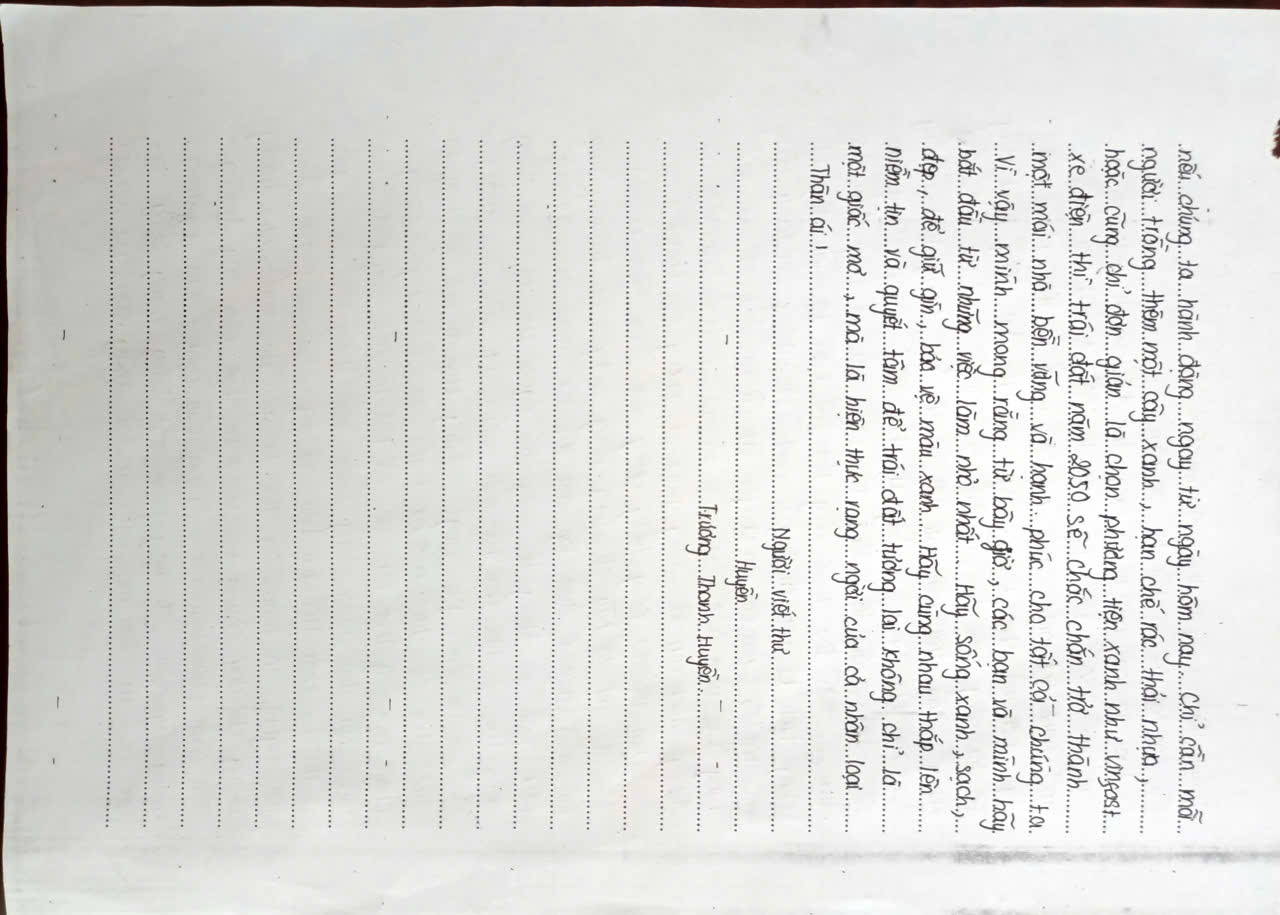 nếu chúng ta hành động ngay từ ngày hôm nay chỉ cần mỗi
người trồng thêm một cây xanh, hạn chế rác thải nhựa,
hoặc cũng chỉ đơn giản là chọn phương tiện xanh như vinfast
xe điện thì trái đất năm 2050 sẽ chắc chắn trở thành
một mái nhà bền vững và hạnh phúc cho tất cả chúng ta
Vì vậy mình mong rằng từ bây giờ, các bạn và mình hãy
bắt đầu từ những việc làm nhỏ nhất. Hãy sống xanh, sạch,
đẹp, để giữ gìn, bảo vệ màu xanh. Hãy cùng nhau thắp lên
niềm tin và quyết tâm để trái đất tương lai không chỉ là
một giấc mơ, mà là hiện thực rạng ngời của cả nhân loại
Thân ái!
Người viết thư
Huyền
Trương Thanh Huyền